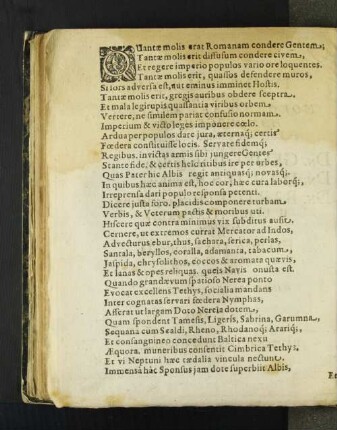 QUantæ molis erat Romanam condere Gentem;
Tantæ molis erit diffusum condere civem,
Et regere imperio populos vario ore loquentes.
Tantæ molis erit, quassos defendere muros,
Si fors adversa est, aut eminus imminet Hostis.
Tantæ molis erit, gregis auribus obdere sceptra.
Et mala legirupis quassantia viribus orbem
Vertere, ne simulem pariat confusio normam.
Imperium & victo leges imponere cœlo.
Ardua per populos dare jura, æternaq; certis
Fœdera constituisse locis. Servare fidemq;
Regibus. invictas armis sibi jungere Gentes
Stante fide, & certis hesc ritibus ire per urbes,
Quas Pater hic Albis regit antiquasq; novasq;.
In quibus hæc anima est, hoc cor, hæc cura laborq;,
Irreprensa dari populo responsa petenti.
Dicere justa foro. placidis componere turbam
Verbis, & Veterum pactis & moribus uti.
Hiscere quæ contra minimus vix subditus ausit.
Cernere, ut extremos currat Mercator ad Indos,
Advecturus ebur, thus, sachara, serica, perlas,
Santala, beryllos, coralla, adamanta, tabacum,
Jaspida, chrysolithos, coccos & aromata quævis,
Et lanas & opes reliquas. queis Navis onusta est.
Quando grandævum spatioso Nerea ponto
Evocat excellens Tethys, socialia mandans
Inter cognatas servari fœdera Nymphas,
Asserat ut largam Doto Nereia dotem,
Quam spondent Tamesis, Ligeris, Sabrina, Garumna,
Sequana cum Scaldi, Rheno, Rhodanoq; Arariq;,
Et consangineo concedunt Baltica nexu
Æquora. muneribus consentit Cimbrica Tethys.
Et vi Neptuni hæc tædalia vincula nectunt.
Immensâ hâc Sponsus jam dote superbiit Albis,